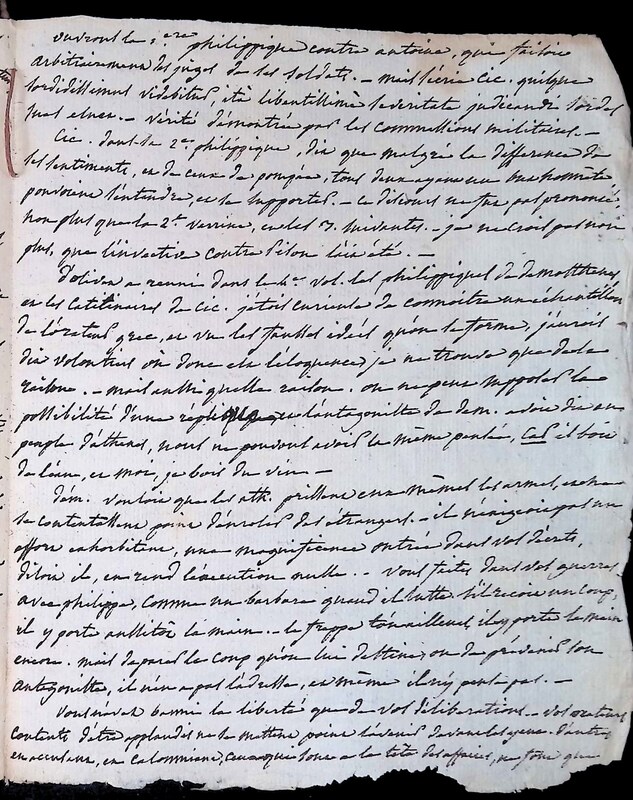 ouvrent la 1.ere philippique contre antoine, qui faisoit
arbitrairement des juges de ses soldats. – mais s'écrie Cic. quisque
sordidissimus videbitur, ita libentissime severitate judicandi sordes
suas eluet. – vérité démontrée par les commissions militaires. –
Cic. dans sa 2.e philippique, dit que malgré la différence de
ses sentiments, et de ceux de pompée, tous deux ayant une honnêteté
pouvoient s'entendre, et se supporter. – ce discours ne fut pas prononcé,
non plus que la 2.e verrine, et les 3. suivantes. – je ne crois pas non
plus, que l'invective contre pison l'ait été. –
d'olivet a réuni dans le vol. les philippiques de demosthenes,
et les catilinaires de Cic. j'étois curieuse de connoître un échantillon
de l'orateur grec, et vu les fausses idées qu'on se forme, j'aurois
dit volontiers où donc est l'éloquence, je ne trouve que de la
raison. – mais aussi quelle raison. on ne peut supposer la
possibilité d'une réplique l'antagoniste de dem. a dit au
peuple d'athenes, nous ne pouvons avoir la même pensée, car il boit
de l'eau, et moi, je bois du vin –
dém. vouloit que les ath. prissent eux mêmes les armes, et ne
se contentassent point d'enroler des étrangers. – il n'exigeoit pas un
effort exhorbitant, une magnificence outrée dans vos décrets,
disoit il, en rend l'exécution nulle. – vous faites dans vos guerres
avec philippe, comme un barbare quand il lutte. s'il reçoit un coup,
il y porte aussitôt la main. – le frappe t'on ailleurs, il y porte la main
encore. mais de parer le coup qu'on lui destine, ou de prévenir son
antagoniste, il n'en a pas l'adresse, et même il n'y pense pas. –
vous n'avez banni la liberté que de vos délibérations. – vos orateurs
contents d'être applaudis ne se mettent point l'avenir devant les yeux. d'autres
en accusant, en calomniant, ceux qui sont à la tête des affaires, ne font que